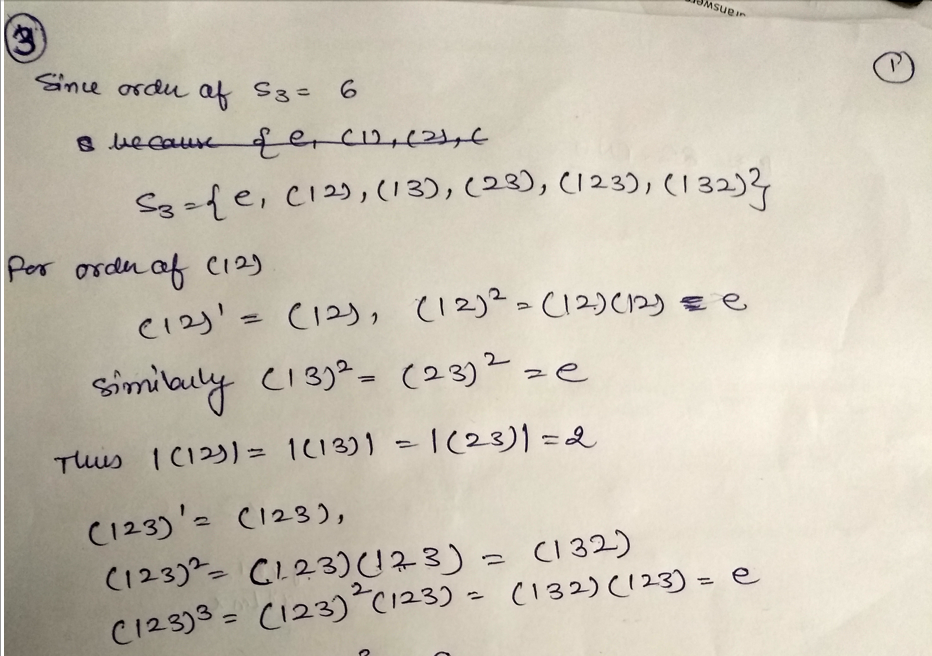 ③
①
Since order of S3 = 6
because { e, (1), (2), (
S3 = { e, (12), (13), (23), (123), (132)}
For order of (12)
(12)¹ = (12), (12)² = (12)(12) = e
Similarly (13)² = (23)² = e
Thus |(12)| = |(13)| = |(23)| = 2
(123)¹ = (123),
(123)² = (123)(123) = (132)
(123)³ = (123)²(123) = (132)(123) = e